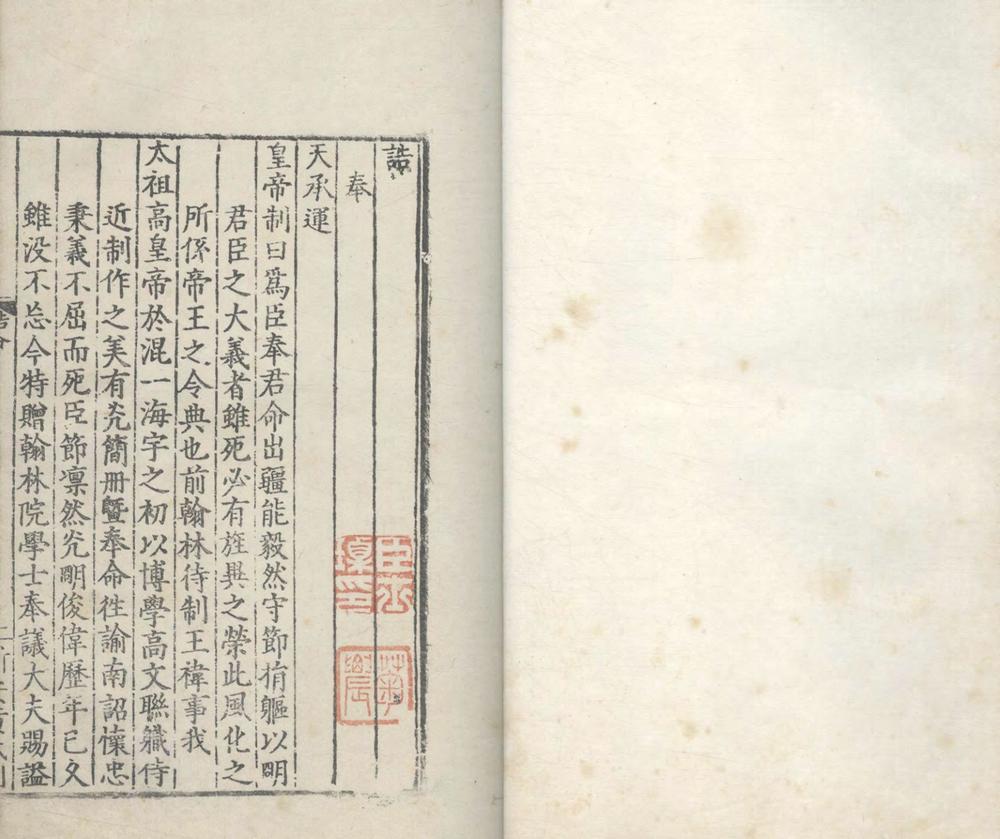 誥
奉
天承運
皇帝制曰爲臣奉君命出疆能毅然守節捐軀以明
君臣之大義者雖死必有旌異之榮此風化之
所係帝王之令典也前翰林待制王禕事我
太祖高皇帝於混一海宇之初以博學高文聯職侍
近制作之美有光簡冊曁奉命徃諭南詔懷忠
秉義不屈而死臣節凛然光明俊偉歷年已久
雖没不忘今特贈翰林院學士奉議大夫賜謚